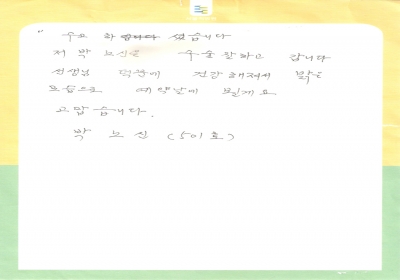 수고 하 셨습니다
저 박노신은 수술 잘하고 갑니다
선생님 덕분에 건강해져서 밝은
모습으로 예약날에 뵐게요
고맙습니다.
박 노 신 (501호)